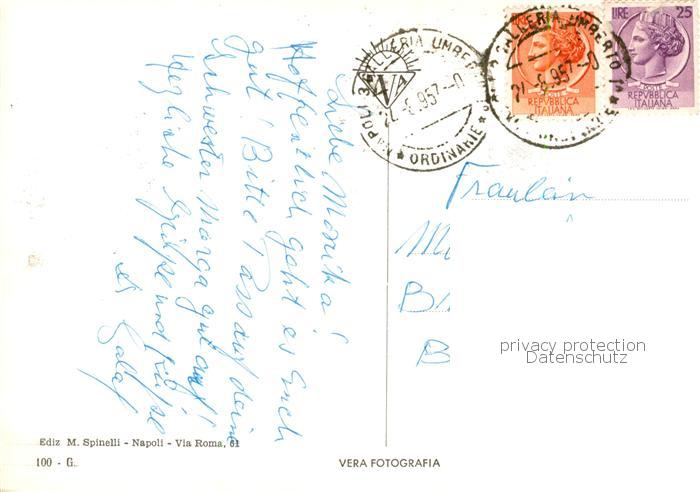 Liebe Monika!
Hoffentlich geht es Euch
gut! Bitte Pass auf deine
Schwester Marga gut auf!
Herzliche Grüße und Küße
NAPOLI 3 GALLERIA UMBERTO
ORDINARIE
LIRE 25
POSTE
REPVBBLICA
ITALIANA
POSTE
REPVBBLICA
ITALIANA
Fräulein
privacy protection
Datenschutz
Ediz M. Spinelli - Napoli - Via Roma, 61
100 - G.
VERA FOTOGRAFIA